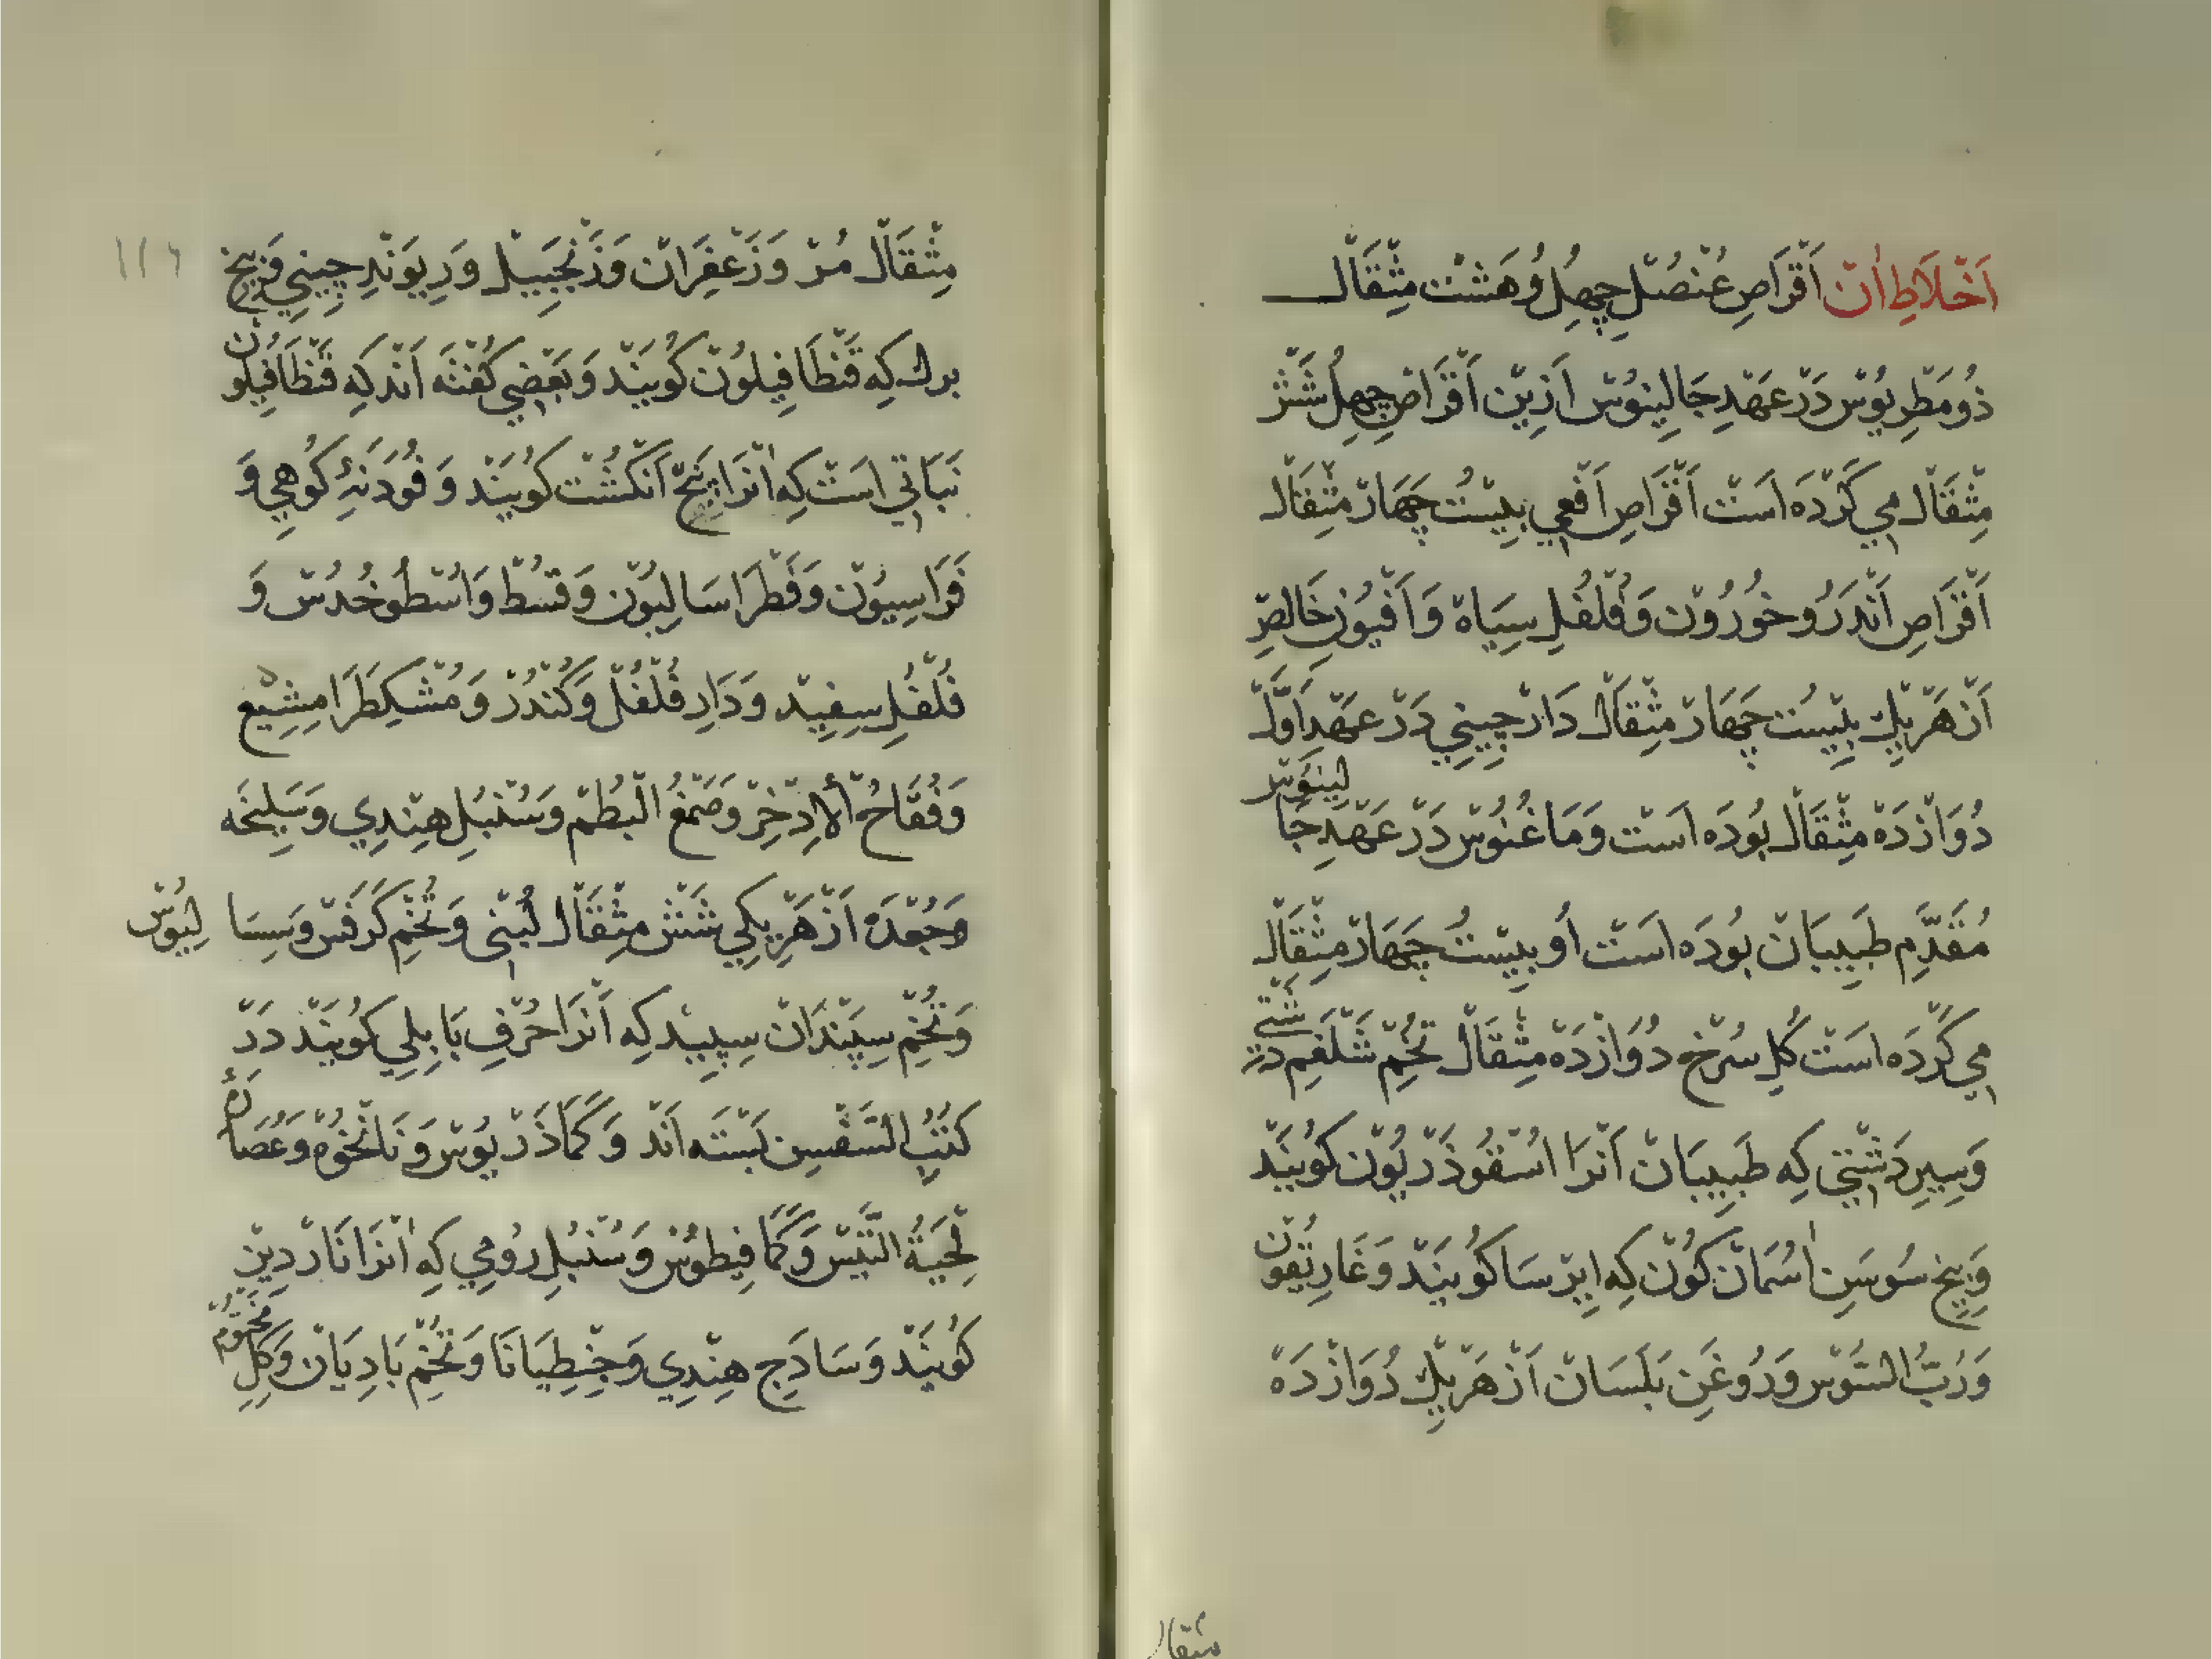 اَخْلَاطِ اٰنْ اَقْرَاصِ عُنْصُلْ چِهِلْ وُ هَشْت مِثْقَالْ
ذُومَطْرِيُوْسْ دَرْ عَهْدِ جَالِينُوْسْ اَزِيْن اَقْرَاصْ چِهِلْ شَشْ
مِثْقَالْ مِي كَرْدَه اَسْت اَقْرَاصِ اَفْعِي بِيْسْتُ چَهَارْ مِثْقَالْ
اَقْرَاصِ اَنْدَرُوخُورُوْن وَ فُلْفُلِ سِيَاهْ وَ اَفْيُونِ خَالِصْ
اَزْ هَرْ يِكْ بِيْسْتُ چَهَارْ مِثْقَالْ دَارْچِيْنِي دَرْ عَهْدِ اَوَّلْ
دُوَازْدَهْ مِثْقَالْ بُودَه اَسْت وَ مَاغْنُوْسْ دَرْ عَهْدِ جَالِينُوْسْ
مُقَدَّمِ طَبِيبَانْ بُودَه اَسْت اُو بِيْسْتُ چَهَارْ مِثْقَالْ
مِي كَرْدَه اَسْت كُلِ سُرْخ دُوَازْدَهْ مِثْقَالْ تُخْمِ شَلْغَمِ دَشْتِي
وَ سِيرِ دَشْتِي كِه طَبِيبَانْ اَنْرَا اُسْقُوذَرْيُوْن كُويَنْد
وَ بِيخِ سُوسَنِ اٰسْمَانْ كُوْن كِه اِيْرْسَا كُويَنْد وَ غَارِيْقُون
وَ رُبُّ السُّوْس وَ رُوغَنِ بَلَسَانْ اَزْ هَرْ يِكْ دُوَازْدَهْ
مثقال
۱۱۶
مِثْقَالْ مُرْ وَ زَعْفَرَانْ وَ زَنْجَبِيلْ وَ رِيوَنْدِ چِيْنِي وَ بِيخِ
برك كِه قَنْطَافِيلُوْن كُويَنْد وَ بَعْضِي كُفْتَه اَنْد كِه قَنْطَافِيلُون
نَبَاتِي اَسْت كِه اٰنْرَا پَنْج اَنْكُشْت كُويَنْد وَ فُودَنَهِٔ كُوهِي وَ
فَرَاسِيُوْن وَ فَطْرَاسَالِيُوْن وَ قُسْطْ وَ اُسْطُوخُدُسْ وَ
فُلْفُلِ سِفِيْد وَ دَارِ فُلْفُلْ وَ كُنْدُرْ وَ مُشْكِطَرَامِشِيْع
وَ فُقَّاحُ الْاِذْخِرْ وَ صَمْغُ الْبُطْمْ وَ سُنْبُلِ هِنْدِي وَ سَلِيخَه
وَ جُعْدَه اَزْ هَرْ يِكِي شَشْ مِثْقَالْ لُبْنِي وَ تُخْمِ كَرَفْس وَ سِسَالِيُوْس
وَ تُخْمِ سِپَنْدَانْ سِپِيْد كِه اَنْرَا حُرْفِ بَابِلِي كُويَنْد دَرْ
كُتُبِ السَّقِسِن بَسْتَه اَنْد وَ كَمَاذَرْيُوس وَ نَانْخُوْه وَ عُصَارَهُٔ
لِحْيَةُ التَّيْس وَ كَمَافِيطُوْس وَ سُنْبُلِ رُومِي كِه اٰنْرَا نَارْدِيْن
كُويَنْد وَ سَادَجِ هِنْدِي وَ جِنْطِيَانَا وَ تُخْمِ بَادِيَانْ وَ كِلِ مَخْتُوْم